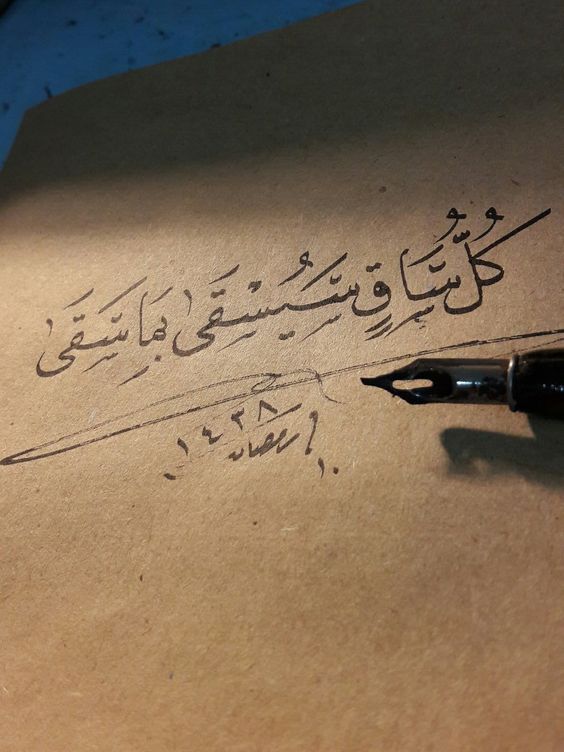 كُلُّ سَاقٍ سَيُسْقَىٰ بِمَا سَقَىٰ
١٠ رمضان
١٤٣٨